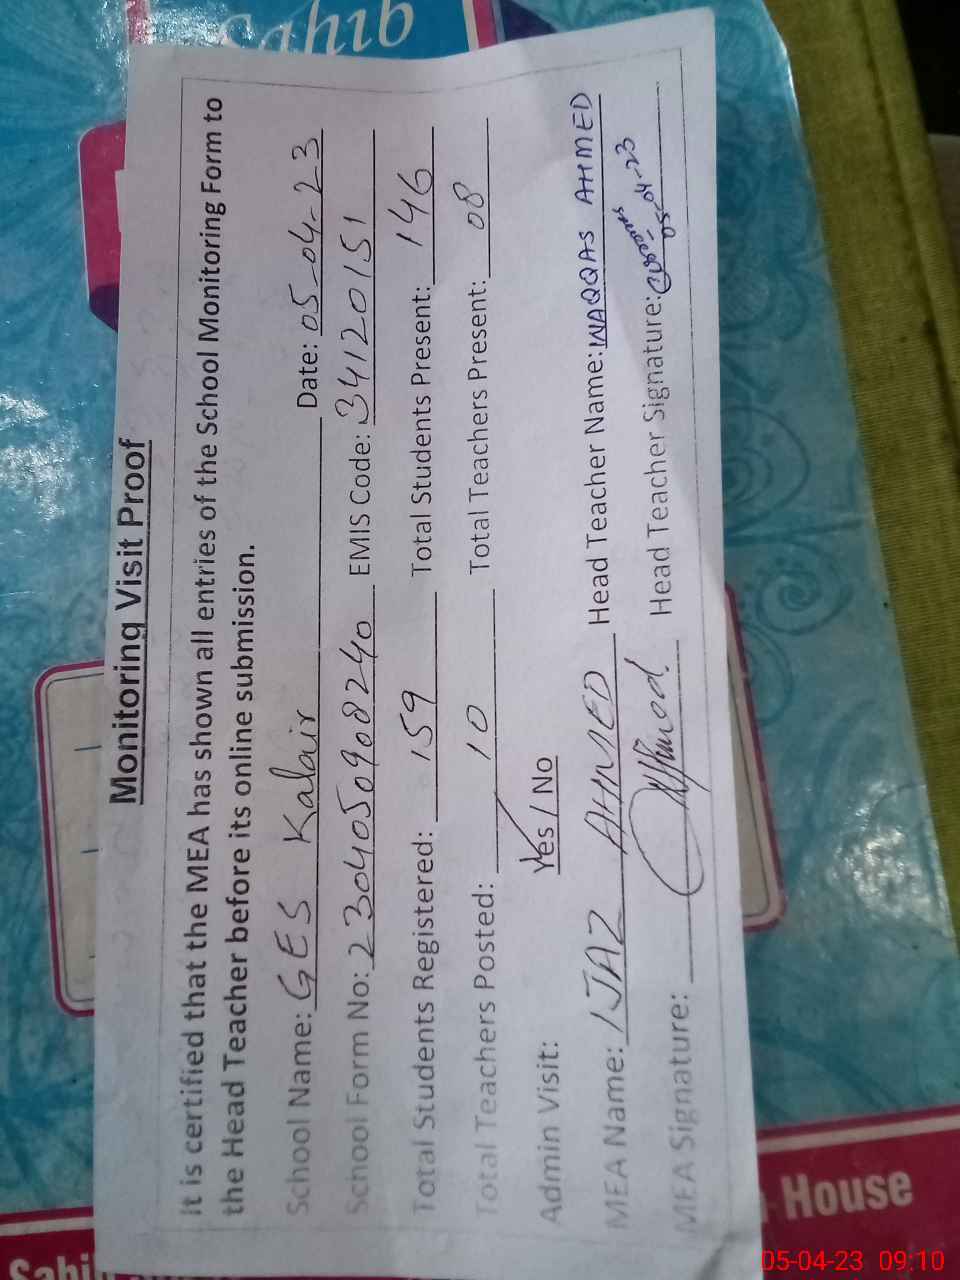 Sahib
Monitoring Visit Proof
It is certified that the MEA has shown all entries of the School Monitoring Form to
the Head Teacher before its online submission.
School Name: GES Kalair Date: 05-04-23
School Form No: 2304050908240 EMIS Code: 34120151
Total Students Registered: 159 Total Students Present: 146
Total Teachers Posted: 10 Total Teachers Present: 08
Admin Visit: Yes / No
MEA Name: IJAZ AHMED Head Teacher Name: WAQQAS AHMED
MEA Signature: Ahmed Head Teacher Signature:
05-04-23
Sahib
House
05-04-23 09:10